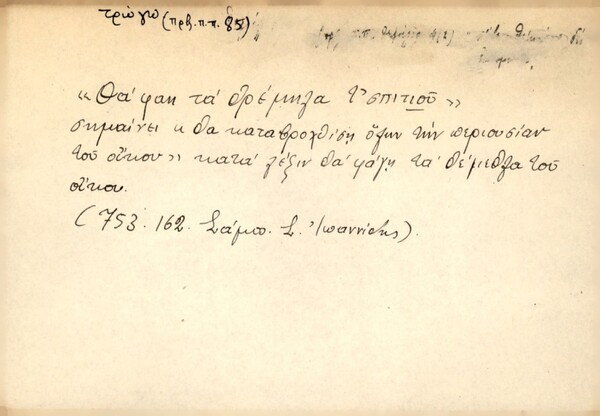 τρώγω (πρβ. π.π. 85)
«Θά φάη τά θρέμηλα τ' σπιτιοῦ»
σημαίνει κ θα καταβροχθίση ὅλην τήν περιουσίαν
τοῦ οἴκου» κατά λέξιν θά φάγη τα θέμεθλα του
οἴκου.
(753. 162. Σάμο. Σ. Ἰωαννίδης).